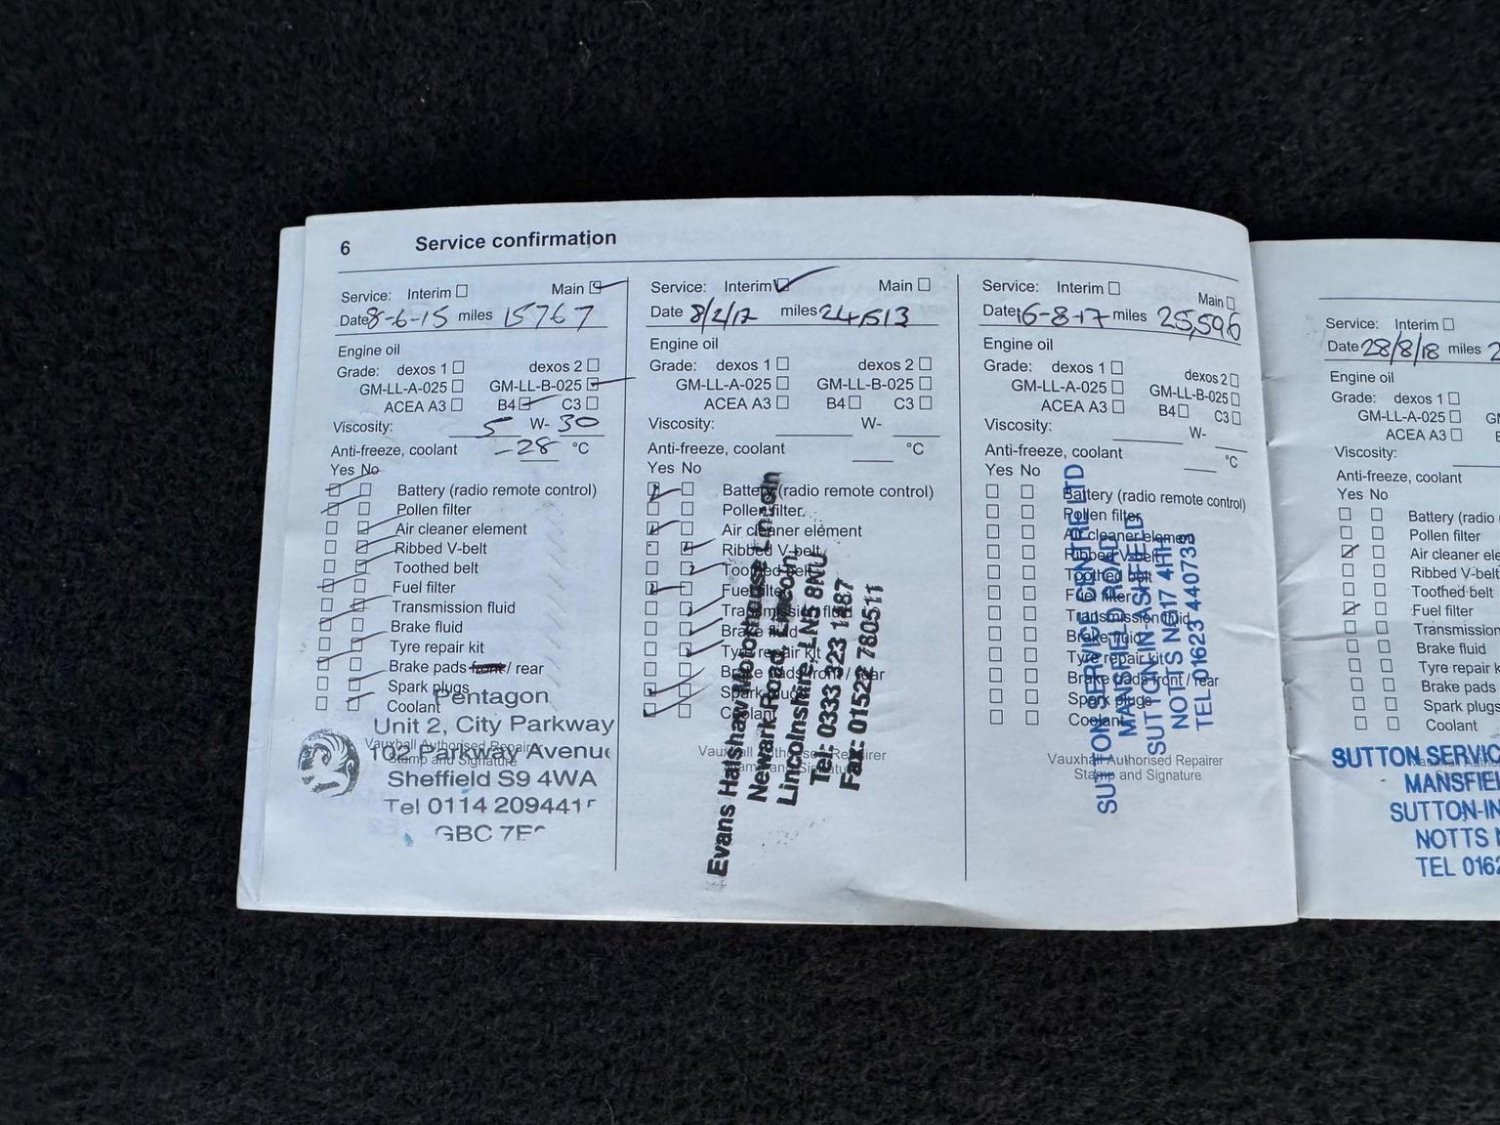 6 Service confirmation
Service: Interim Main
Date 8-6-15 miles 15767
Engine oil
Grade: dexos 1 dexos 2
GM-LL-A-025 GM-LL-B-025
ACEA A3 B4 C3
Viscosity: 5 W- 30
Anti-freeze, coolant -28 °C
Yes No
Battery (radio remote control)
Pollen filter
Air cleaner element
Ribbed V-belt
Toothed belt
Fuel filter
Transmission fluid
Brake fluid
Tyre repair kit
Brake pads front / rear
Spark plugs
Coolant
Pentagon
Unit 2, City Parkway
102 Parkway Avenue
Vauxhall Authorised Repairer
Stamp and Signature
Sheffield S9 4WA
Tel 0114 209441
GBC 7E
Service: Interim Main
Date 8/2/17 miles 24,513
Engine oil
Grade: dexos 1 dexos 2
GM-LL-A-025 GM-LL-B-025
ACEA A3 B4 C3
Viscosity: W-
Anti-freeze, coolant °C
Yes No
Battery (radio remote control)
Pollen filter
Air cleaner element
Ribbed V-belt
Toothed belt
Fuel filter
Transmission fluid
Brake fluid
Tyre repair kit
Brake pads front / rear
Spark plugs
Coolant
Vauxhall Authorised Repairer
Stamp and Signature
Evans Halshaw Motorhouse Lincoln
Newark Road, Lincoln,
Lincolnshire, LN5 8NU
Tel: 0333 323 1887
Fax: 01522 780511
Service: Interim Main
Date 16-8-17 miles 25,596
Engine oil
Grade: dexos 1 dexos 2
GM-LL-A-025 GM-LL-B-025
ACEA A3 B4 C3
Viscosity: W-
Anti-freeze, coolant °C
Yes No
Battery (radio remote control)
Pollen filter
Air cleaner element
Ribbed V-belt
Toothed belt
Fuel filter
Transmission fluid
Brake fluid
Tyre repair kit
Brake pads front / rear
Spark plugs
Coolant
Vauxhall Authorised Repairer
Stamp and Signature
SUTTON SERVICE CENTRE LTD
MANSFIELD ROAD
SUTTON IN ASHFIELD
NOTTS NG17 4HH
TEL 01623 440733
Service: Interim
Date 28/8/18 miles 2
Engine oil
Grade: dexos 1
GM-LL-A-025
ACEA A3
Viscosity:
Anti-freeze, coolant
Yes No
Battery (radio
Pollen filter
Air cleaner ele
Ribbed V-belt
Toothed belt
Fuel filter
Transmission
Brake fluid
Tyre repair k
Brake pads
Spark plugs
Coolant
SUTTON SERVIC
MANSFIEL
SUTTON-IN
NOTTS
TEL 0162